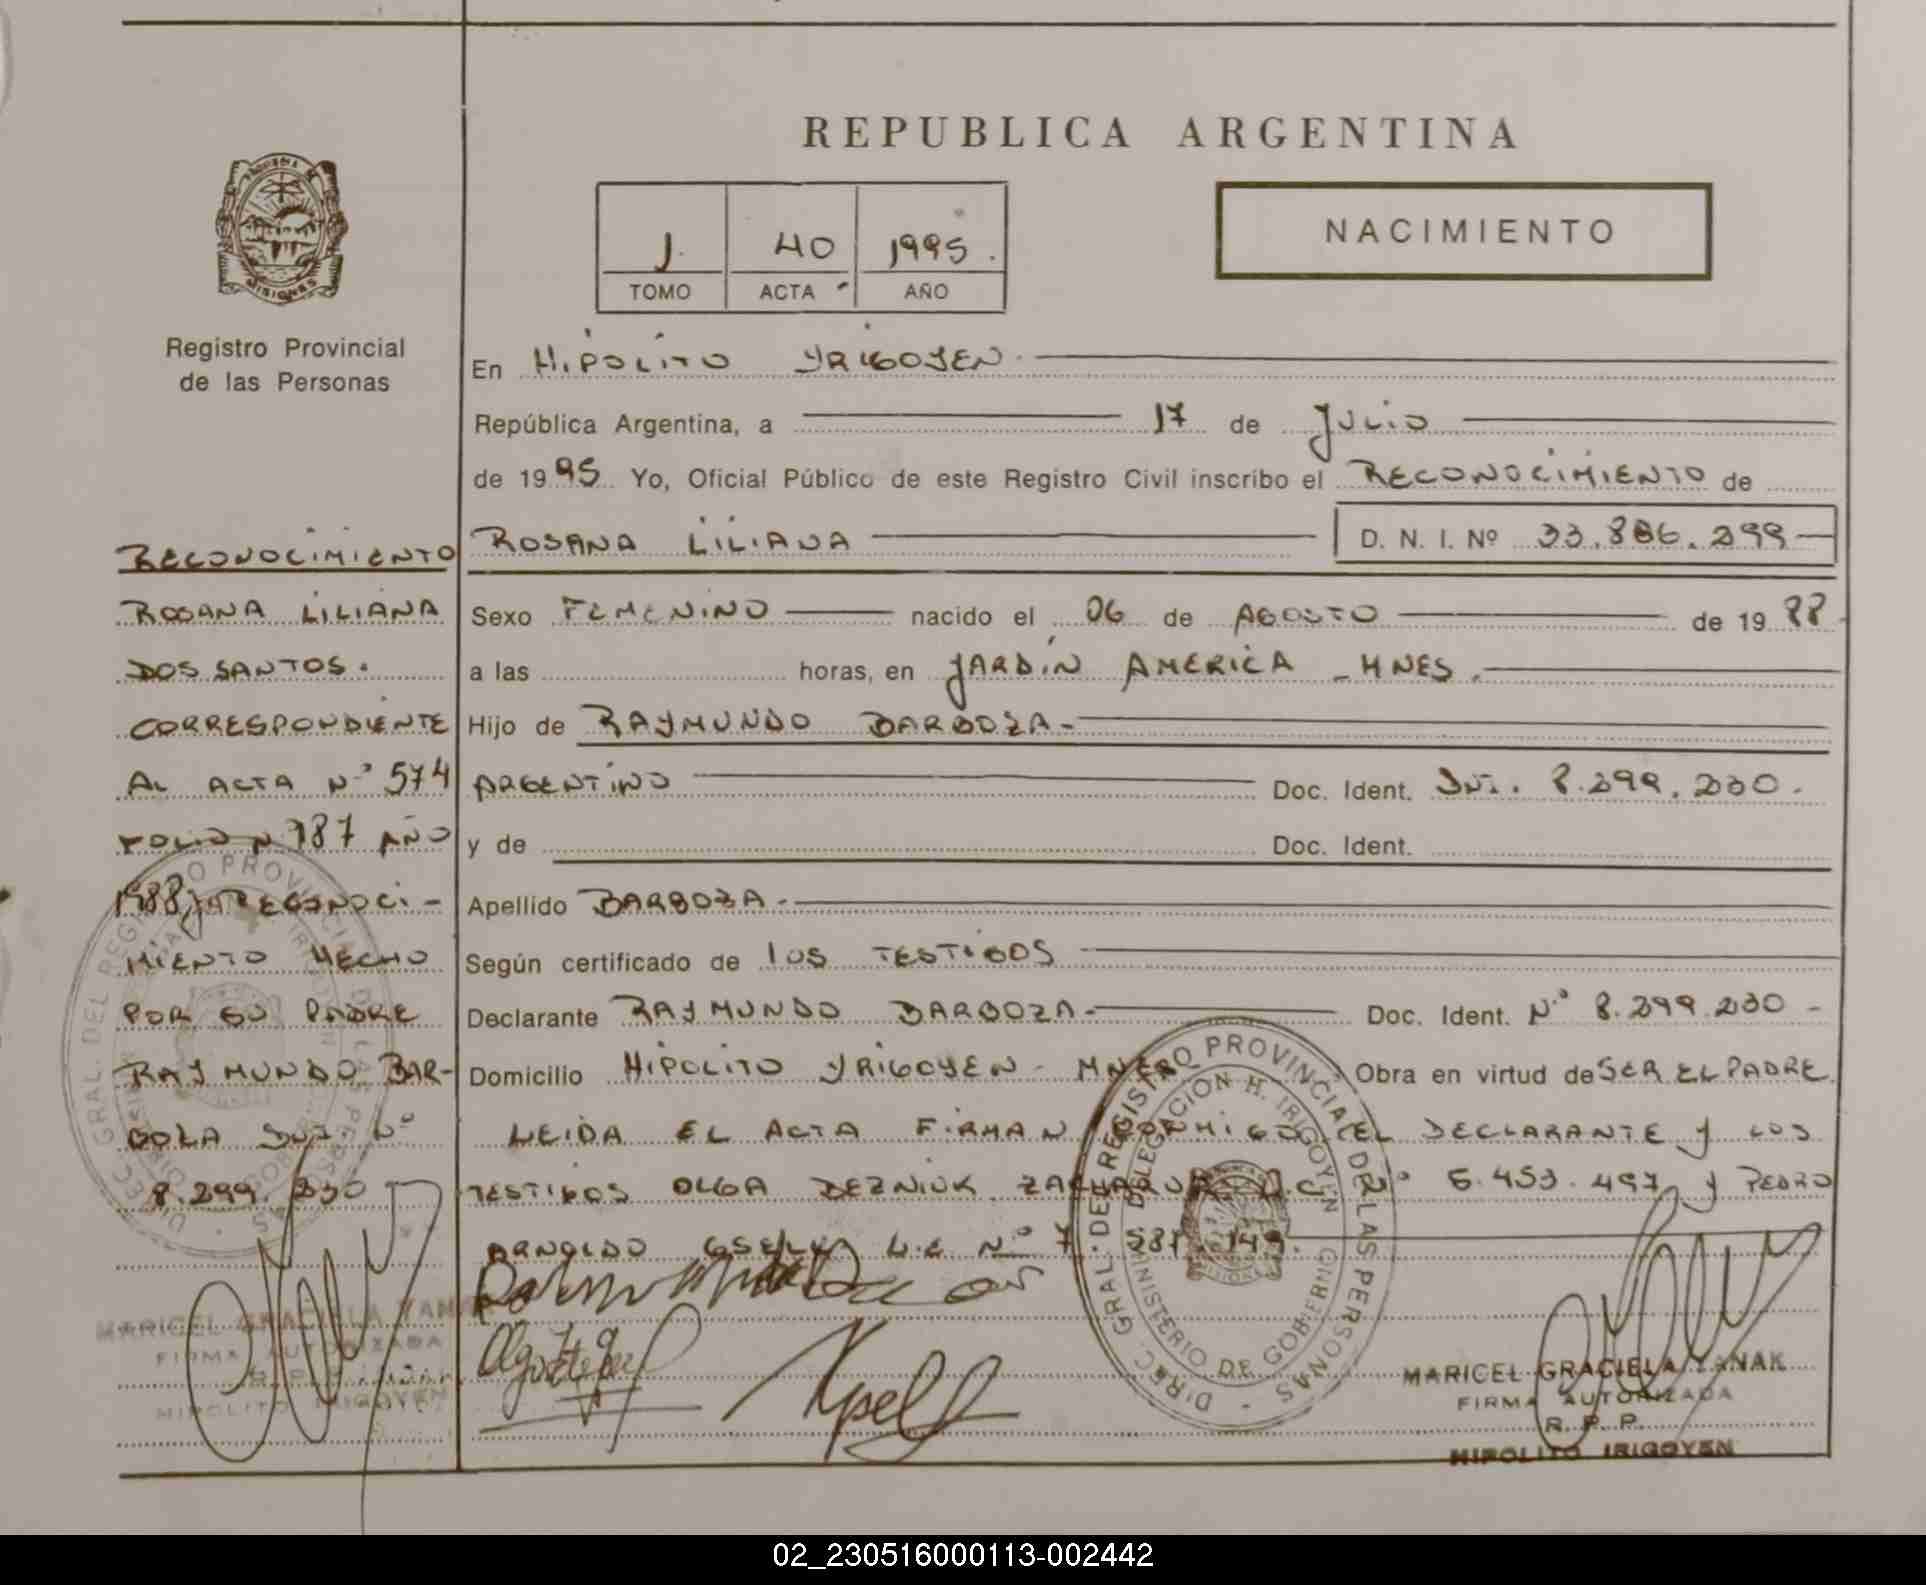 REPUBLICA ARGENTINA
MISIONES
Registro Provincial
de las Personas
1. 40 1995.
TOMO ACTA AÑO
NACIMIENTO
En HIPOLITO YRIGOYEN.
República Argentina, a 17 de JULIO
de 1995 Yo, Oficial Público de este Registro Civil inscribo el RECONOCIMIENTO de
ROSANA LILIANA D. N. I. Nº 33.886.299
Sexo FEMENINO nacido el 06 de AGOSTO de 1988
a las horas, en JARDIN AMERICA - MNES.
Hijo de RAYMUNDO BARBOZA-
ARGENTINO Doc. Ident. DNI. 8.299.230.
y de Doc. Ident.
Apellido BARBOZA-
Según certificado de LOS TESTIGOS
Declarante RAYMUNDO BARBOZA- Doc. Ident. Nº 8.299.230 -
Domicilio HIPOLITO YRIGOYEN - MNES Obra en virtud de SER EL PADRE
LEIDA EL ACTA FIRMAN CONMIGO EL DECLARANTE Y LOS
TESTIGOS OLGA L.C. Nº 6.453.497 Y PEDRO
ARNOLDO L.E Nº 7 587.149.
RECONOCIMIENTO
ROSANA LILIANA
DOS SANTOS.
CORRESPONDIENTE
AL ACTA Nº 574
FOLIO Nº 187 AÑO
1988, RECONOCI-
MIENTO HECHO
POR SU PADRE
RAYMUNDO BAR-
BOZA DNI. Nº
8.299.230
DIREC. GRAL. DEL REGISTRO PROVINCIAL DE LAS PERSONAS
DIREC. GRAL. DEL REGISTRO PROVINCIAL DE LAS PERSONAS
DELEGACION H. IRIGOYEN
MINISTERIO DE GOBIERNO
MARICEL GRACIELA YANAK
FIRMA AUTORIZADA
HIPOLITO IRIGOYEN
MARICEL GRACIELA YANAK
FIRMA AUTORIZADA
R. P. P.
HIPOLITO IRIGOYEN
02_230516000113-002442